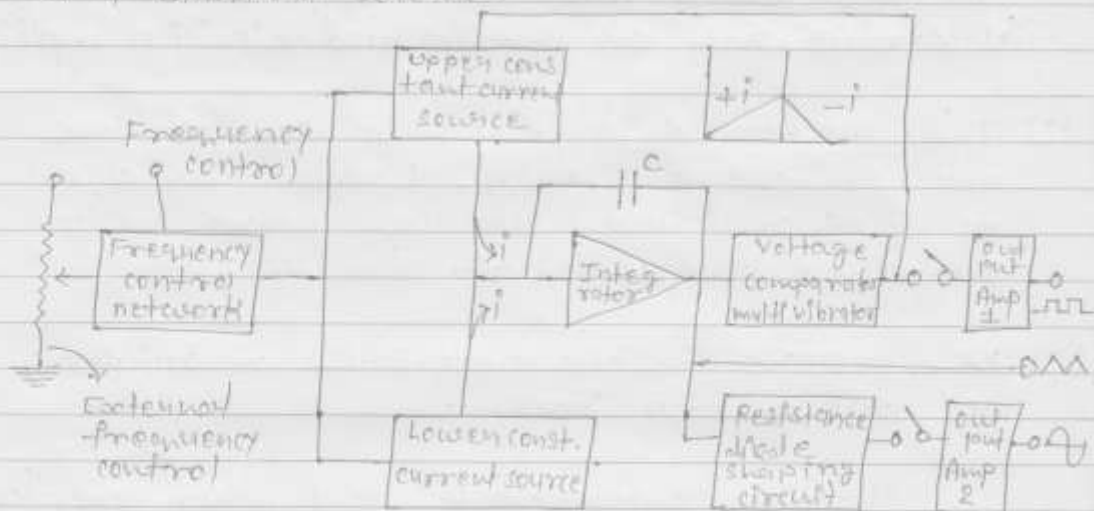 upper cons
tant curren
source
+i
-i
Frequency
control
C
Frequency
control
network
i
i
Integ
rator
Voltage
comparator
multivibrator
out
put
Amp
1
External
frequency
control
Lower const.
current source
Resistance
diode
shaping
circuit
out
put
Amp
2